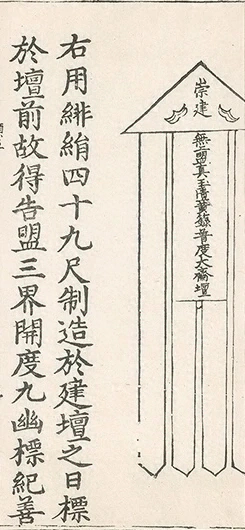 崇建
無上盟真玉黃籙普度大齋壇
右用緋絹四十九尺制造於建壇之日標
於壇前故得告盟三界開度九幽標紀善